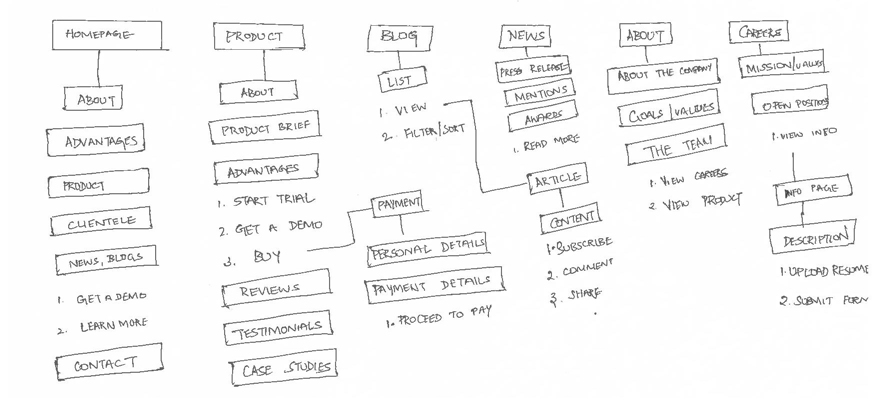 HOMEPAGE
ABOUT
ADVANTAGES
PRODUCT
CLIENTELE
NEWS, BLOGS
1. GET A DEMO
2. LEARN MORE
CONTACT
PRODUCT
ABOUT
PRODUCT BRIEF
ADVANTAGES
1. START TRIAL
2. GET A DEMO
3. BUY
REVIEWS
TESTIMONIALS
CASE STUDIES
BLOG
LIST
1. VIEW
2. FILTER/SORT
PAYMENT
PERSONAL DETAILS
PAYMENT DETAILS
1. PROCEED TO PAY
NEWS
PRESS RELEASE
MENTIONS
AWARDS
1. READ MORE
ARTICLE
CONTENT
1. SUBSCRIBE
2. COMMENT
3. SHARE
ABOUT
ABOUT THE COMPANY
GOALS/VALUES
THE TEAM
1. VIEW CAREERS
2. VIEW PRODUCT
CAREERS
MISSION/VALUES
OPEN POSITIONS
1. VIEW INFO
INFO PAGE
DESCRIPTION
1. UPLOAD RESUME
2. SUBMIT FORM